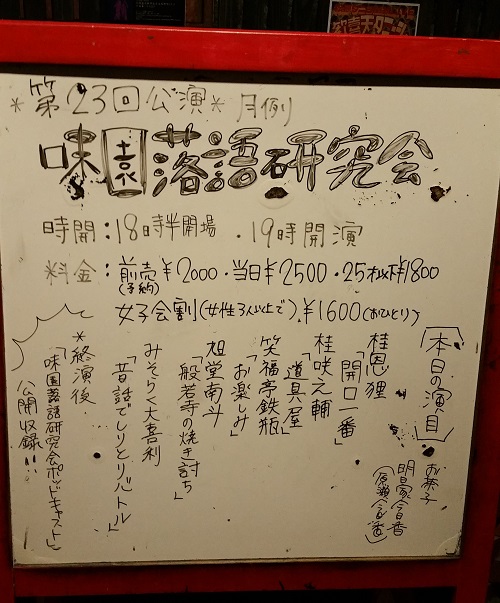 *第23回公演* 月例
味園落語研究会
時間:18時半開場 ・19時開演
料金:前売¥2000・当日¥2500・25才以下¥1800
(予約)
女子会割(女性3人以上で)¥1600(おひとり)
「本日の演目」
お茶子
桂恩狸
「開口一番」
桂咲之輔
「道具屋」
笑福亭鉄瓶
「お楽しみ」
旭堂南斗
「般若寺の焼き討ち」
みそらく大喜利
「昔話でしりとりバトル」
*終演後
「味園落語研究会ポッドキャスト」
公開収録!!